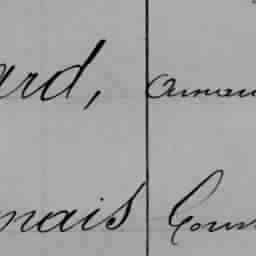 ard, Arman
mais Cour